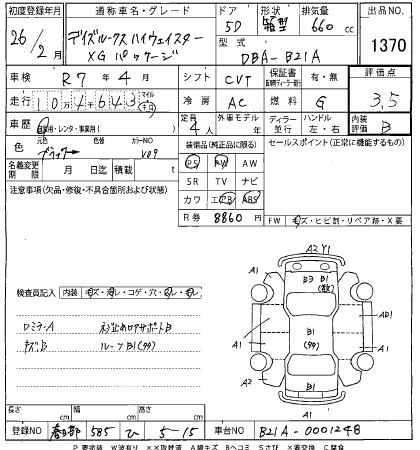 初度登録年月 通称車名・グレード ドア 形状 排気量 出品NO
26年2月 デイズルークス ハイウェイスター XG パッケージ 5D 箱型 660cc 1370
型式 DBA-B21A
車検 R7年4月 シフト CVT 保証書 有・無 評価点
走行 104643 冷房 AC 燃料 G 3.5
車歴 自家用・レンタ・事業用( ) 定員 4人 外車モデル 年 ディーラー 並行 ハンドル 左・右 内装評価 B
色 元色 色替 カラーNO V09
装備品(純正品に限る) セールスポイント(正常に機能するもの)
名義変更期限 月 日迄 積載 t
PS PW AW
注意事項(欠品・修復・不具合箇所および状態) SR TV ナビ
カワ エアB ABS
R券 8860円
FW キズ・ヒビ割・リペア跡・X要
検査員記入 内装 キズ・汚レ・コゲ・穴
ロミラーA ネジ止めロアサポートB
キズB ルーフB1(多々)
A2 Y1
A1 B3 B1 A1
B1 AB1
A1 A1
A2 A1
長さ cm 幅 cm 高さ cm
登録NO 春日部 585 ひ 5-15 車台NO B21A-0001248
P要塗装 W波有り XX取替済 A線キズ Bヘコミ Sさび X要交換 C腐食